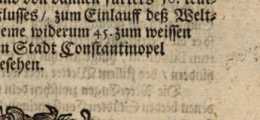 und von dannen fürters 30. teut-
flusses / zum Einlauff deß Welt-
eme widerum 45. zum weissen
n Stadt Constantinopel
esehen.